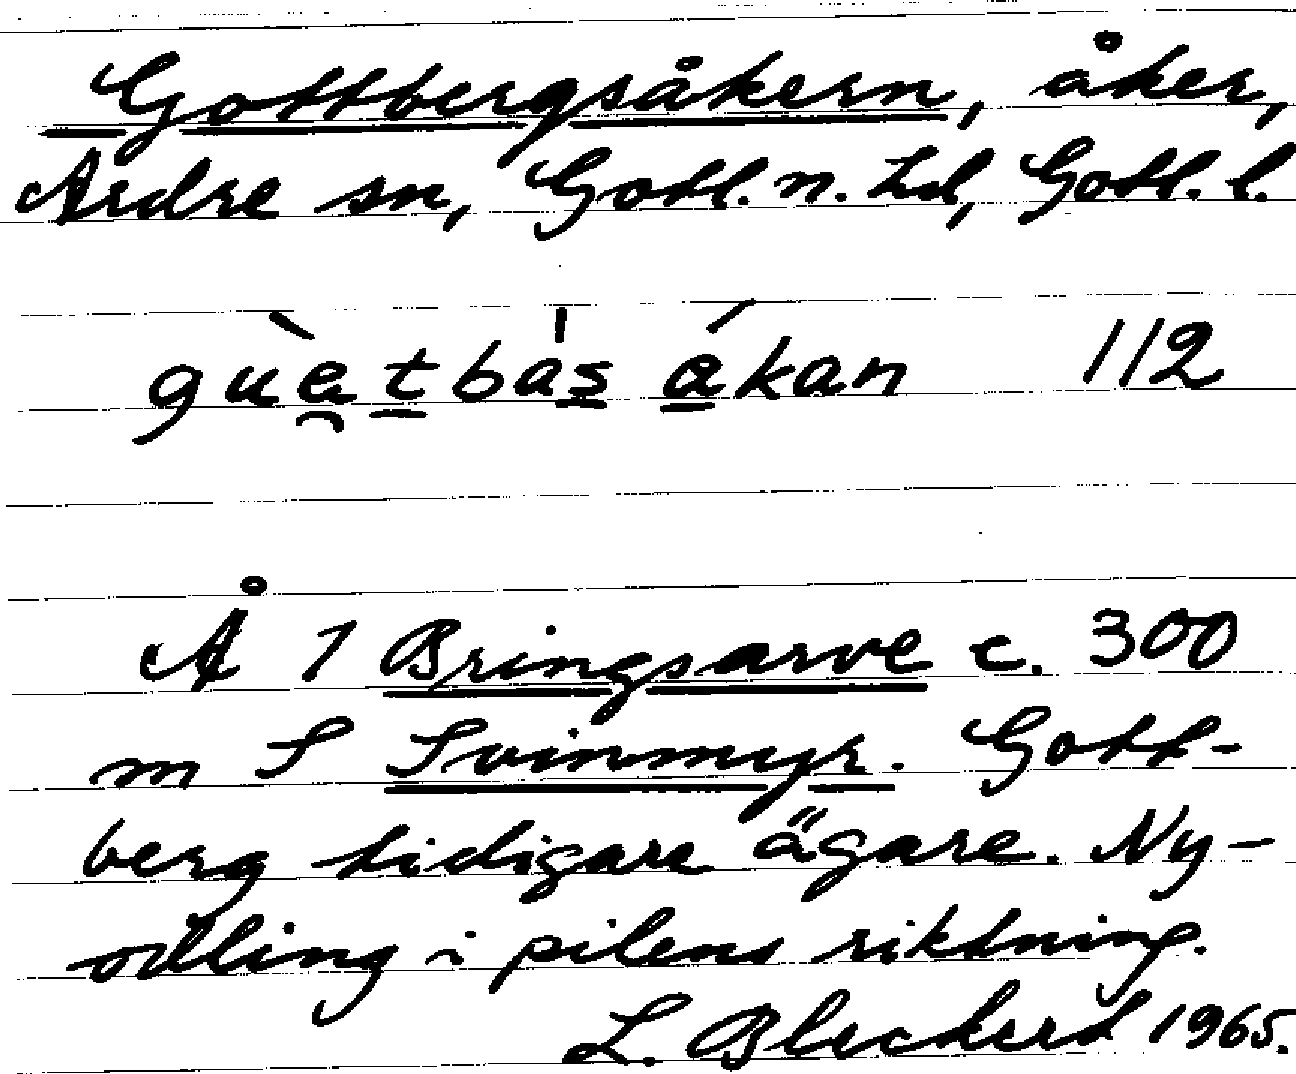 Gottbergsåkern, åker,
Ardre sn, Gotl. n. hd, Gotl. l.
guèt̠bàs̠ ákan 112
Å 1 Bringsarve c. 300
m S Svinmyr. Gott-
berg tidigare ägare. Ny-
odling i pilens riktning.
L. Bleckerd 1965.